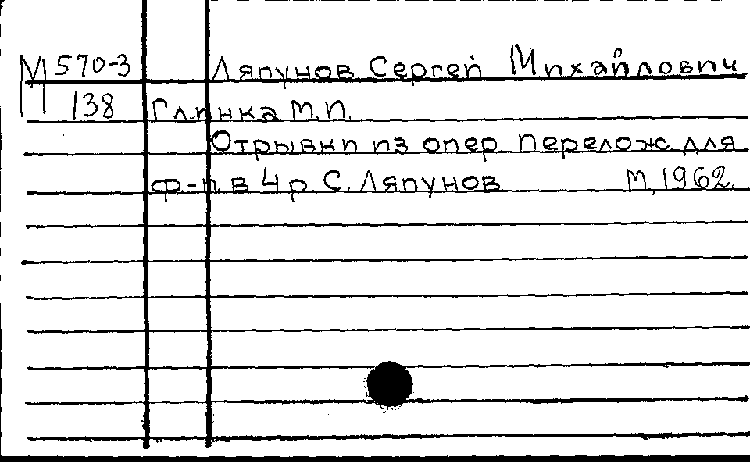 М 570-3 Ляпунов Сергей Михайлович
138 Глинка М.И.
Отрывки из опер перелож для
ф-п в 4 р С. Ляпунов М, 1962.